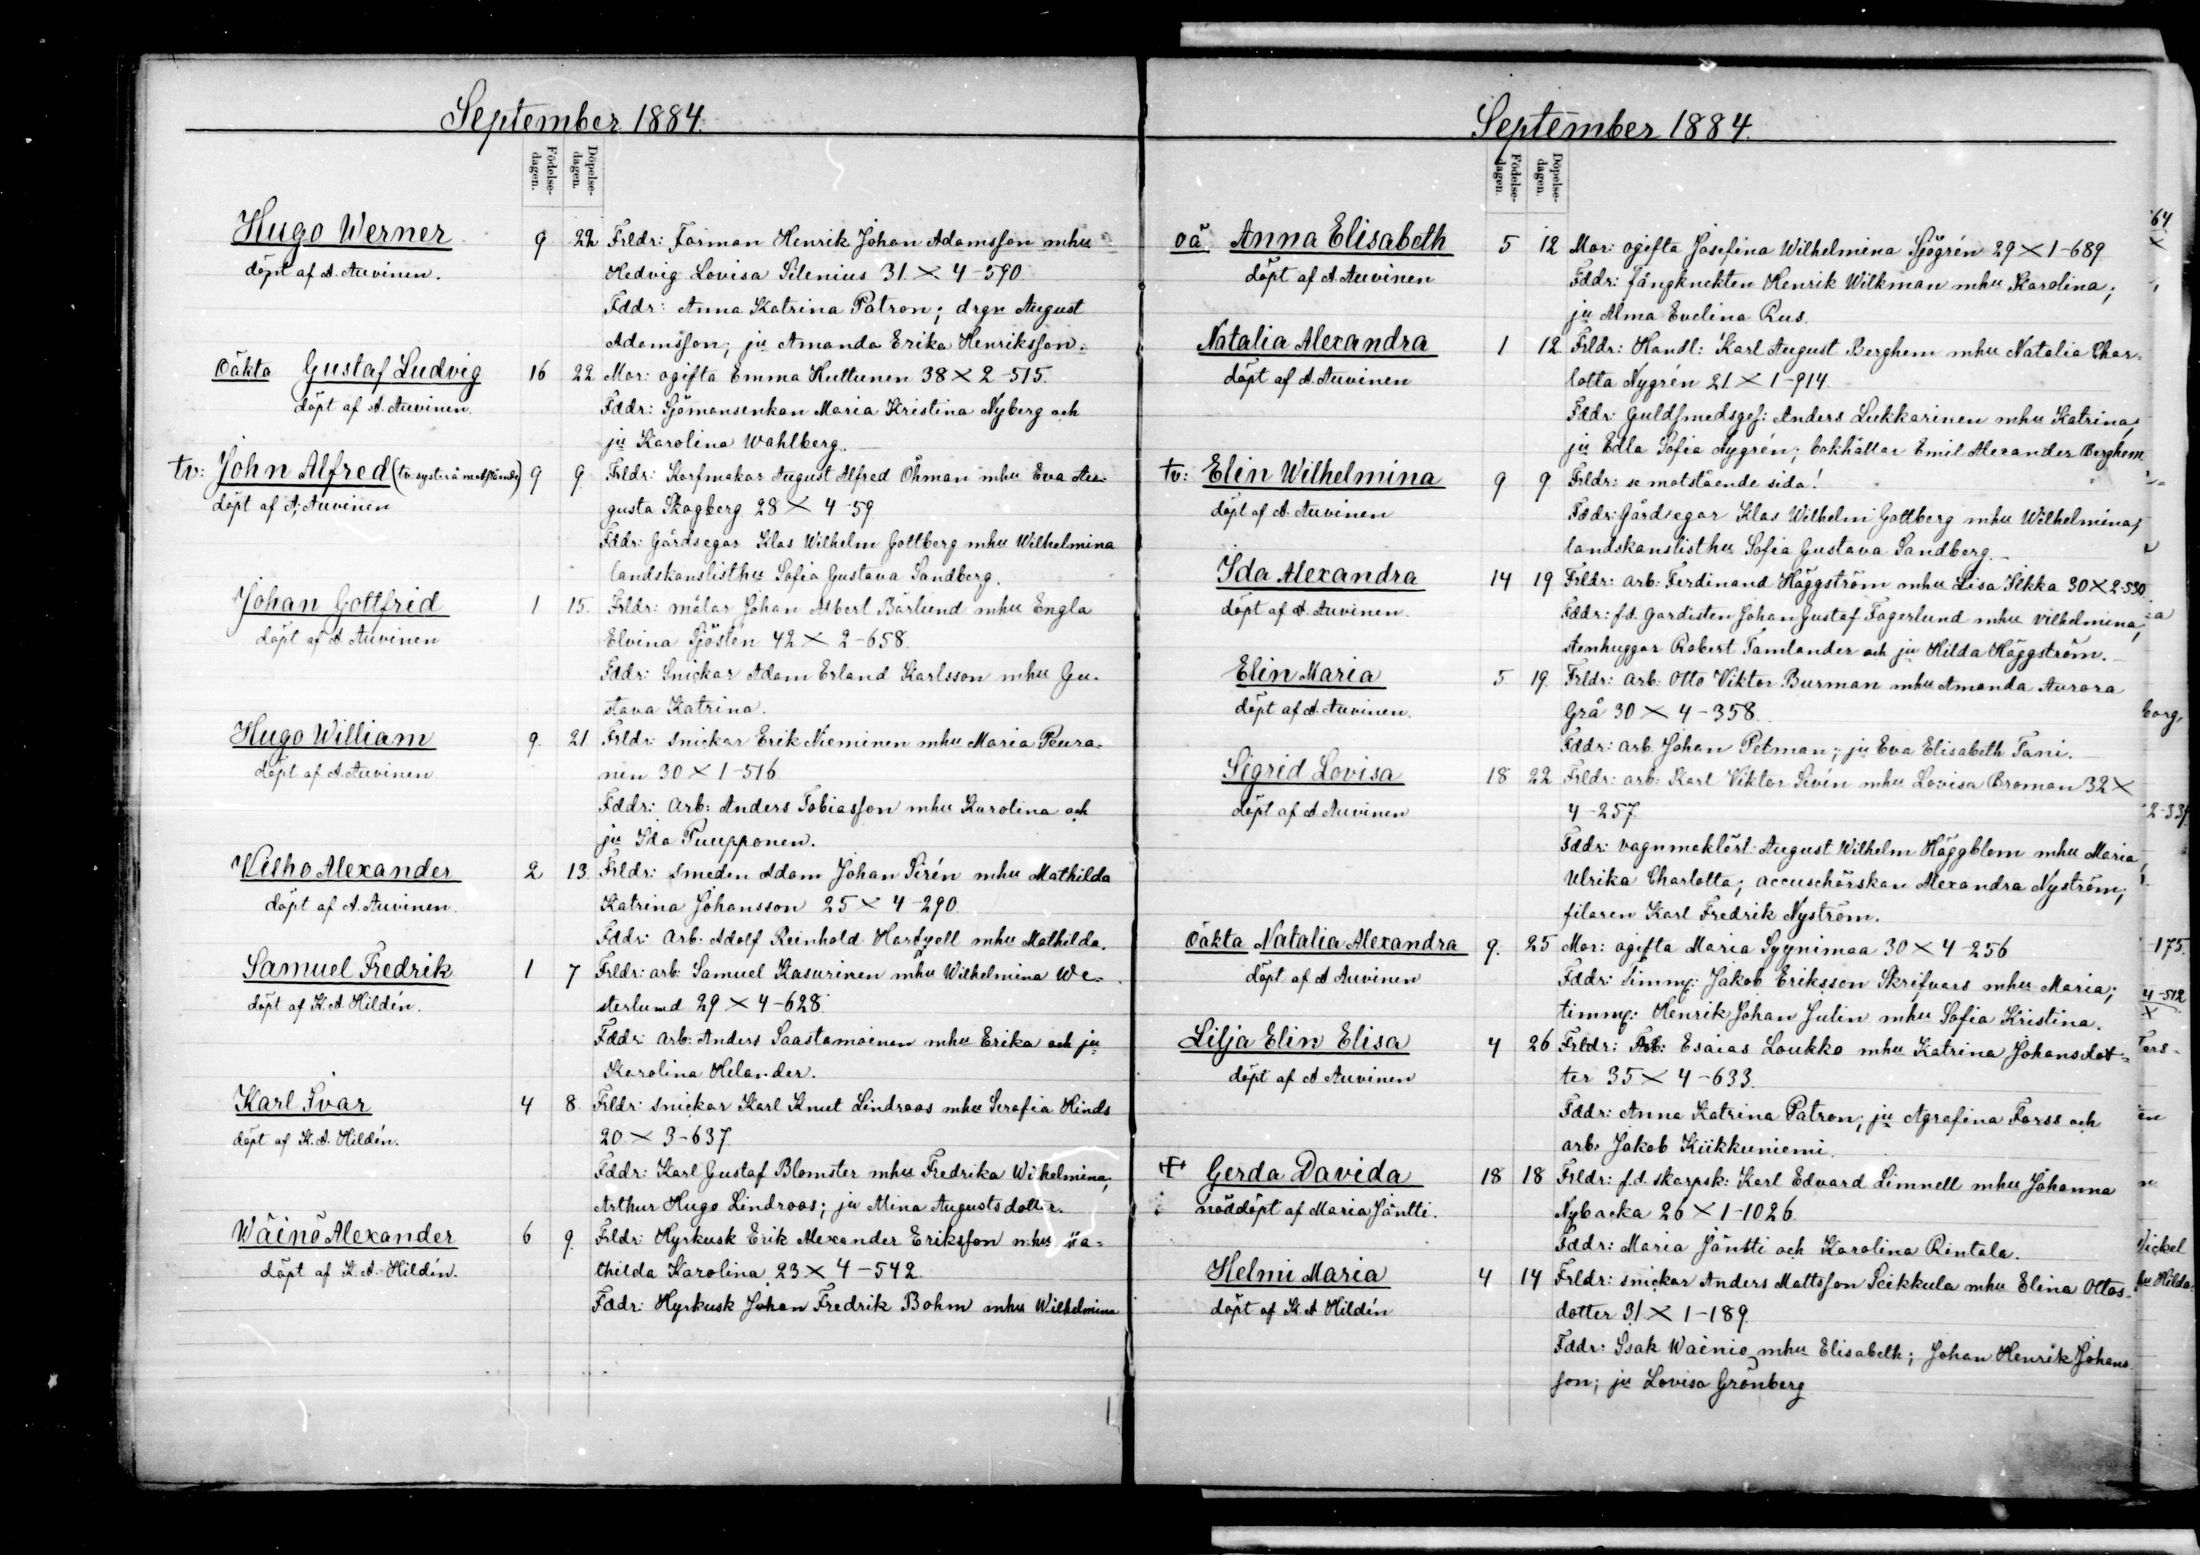 September 1884.
Födelse-dagen.
Döpelse-dagen.
Hugo Werner 9 22 Frldr: Forman Henrik Johan Adamsson mhu
döpt af A. Auvinen. Hedvig Lovisa Silenius 31 × 4-590
Fddr: Anna Katrina Patron; drgn August
Adamsson; ju Amanda Erika Henriksson.
Oäkta Gustaf Ludvig 16 22 Mor: ogifta Emma Huttunen 38 × 2-515.
döpt af A. Auvinen. Fddr: Sjömansenkan Maria Kristina Nyberg och
ju Karolina Wahlberg.
tv: John Alfred (tv. syster å motstående) 9 9 Frldr: Korfmakar August Alfred Öhman mhu Eva Au-
döpt af A. Auvinen gusta Skogberg 28 × 4-59
Fddr: Gårdsegar Klas Wilhelm Gottberg mhu Wilhelmina
landskanslisthu Sofia Gustava Sandberg.
Johan Gottfrid 1 15. Frldr: målar Johan Albert Bärlund mhu Engla
döpt af A. Auvinen Elvina Sjöstén 42 × 2-658.
Fddr: Snickar Adam Erland Karlsson mhu Gu-
stava Katrina.
Hugo William 9. 21 Frldr: snickar Erik Nieminen mhu Maria Peura-
döpt af A. Auvinen nen 30 × 1-516
Fddr: Arb: Anders Tobiasson mhu Karolina och
ju Ida Puupponen.
Wilho Alexander 2 13. Frldr: smeden Adam Johan Sirén mhu Mathilda
döpt af A. Auvinen. Katrina Johansson 25 × 4-290.
Fddr: Arb: Adolf Reinhold Hartzell mhu Mathilda.
Samuel Fredrik 1 7 Frldr: arb: Samuel Kasurinen mhu Wilhelmina We-
döpt af K. A. Hildén. sterlund 29 × 4-628.
Fddr: Arb: Anders Saastamoinen mhu Erika och ju
Karolina Helander.
Karl Ivar 4 8. Frldr: snickar Karl Knut Lindroos mhu Serafia Hinds
döpt af K. A. Hildén. 20 × 3-637.
Fddr: Karl Gustaf Blomster mhu Fredrika Wilhelmina;
Arthur Hugo Lindroos; ju Mina Augustsdotter.
Wäinö Alexander 6 9. Frldr: Hyrkusk Erik Alexander Eriksson mhu Ma-
döpt af K. A. Hildén. thilda Karolina 23 × 4-542.
Fddr: Hyrkusk Johan Fredrik Bohm mhu Wilhelmina
September 1884.
Födelse-dagen.
Döpelse-dagen.
oä Anna Elisabeth 5 12 Mor: ogifta Josefina Wilhelmina Sjögrén 29 × 1-689.
döpt af A. Auvinen Fddr: fångknekten Henrik Wilkman mhu Karolina;
ju Alma Evelina Rus.
Natalia Alexandra 1 12 Frldr: Handl: Karl August Berghem mhu Natalia Char-
döpt af A. Auvinen lotta Nygrén 21 × 1-914.
Fddr: Guldsmedsges: Anders Lukkarinen mhu Katrina;
ju Edla Sofia Nygrén; bokhållar Emil Alexander Berghem
tv: Elin Wilhelmina 9 9 Frldr: se motstående sida!
döpt af A. Auvinen Fddr: Gårdsegar Klas Wilhelm Gottberg mhu Wilhelmina;
landskanslisthu Sofia Gustava Sandberg.
Ida Alexandra 14 19 Frldr: arb: Ferdinand Häggström mhu Lisa Ilkka 30 × 2-530
döpt af A. Auvinen. Fddr: f.d. gardisten Johan Gustaf Fagerlund mhu Vilhelmina;
stenhuggar Robert Tamlander och ju Hilda Häggström.
Elin Maria 5 19. Frldr: arb: Otto Viktor Burman mhu Amanda Aurora
döpt af A. Auvinen. Grå 30 × 4-358.
Fddr: arb. Johan Petman; ju Eva Elisabeth Tani.
Sigrid Lovisa 18 22 Frldr: arb: Karl Viktor Sivén mhu Lovisa Broman 32 ×
döpt af A. Auvinen 4-257.
Fddr: vagnmaklärl: August Wilhelm Häggblom mhu Maria;
Ulrika Charlotta; accuschörskan Alexandra Nyström;
filaren Karl Fredrik Nyström.
Oäkta Natalia Alexandra 9. 25 Mor: ogifta Maria Syynimaa 30 × 4-256
döpt af A Auvinen Fddr: timmj: Jakob Eriksson Skrifvars mhu Maria;
timmj: Henrik Johan Julin mhu Sofia Kristina.
Lilja Elin Elisa 4 26 Frldr: Arb: Esaias Loukko mhu Katrina Johansdot-
döpt af A Auvinen ter 35 × 4-633.
Fddr: Anna Katrina Patron; ju Agrafina Forss och
arb. Jakob Kiikkuniemi.
Gerda Davida 18 18 Frldr: f.d. skarpsk: Karl Edvard Limnell mhu Johanna
nöddöpt af Maria Jäntti. Nybacka 26 × 1-1026.
Fddr: Maria Jäntti och Karolina Rintala.
Helmi Maria 4 14 Frldr: snickar Anders Mattsson Seikkula mhu Elina Ottos-
döpt af K A Hildén dotter 31 × 1-189.
Fddr: Isak Wäinio mhu Elisabeth; Johan Henrik Johans
son; ju Lovisa Grönberg
64
×
borg,
2-33
-175.
4-512
×
Fers-
en
Nickel
hu Hilda